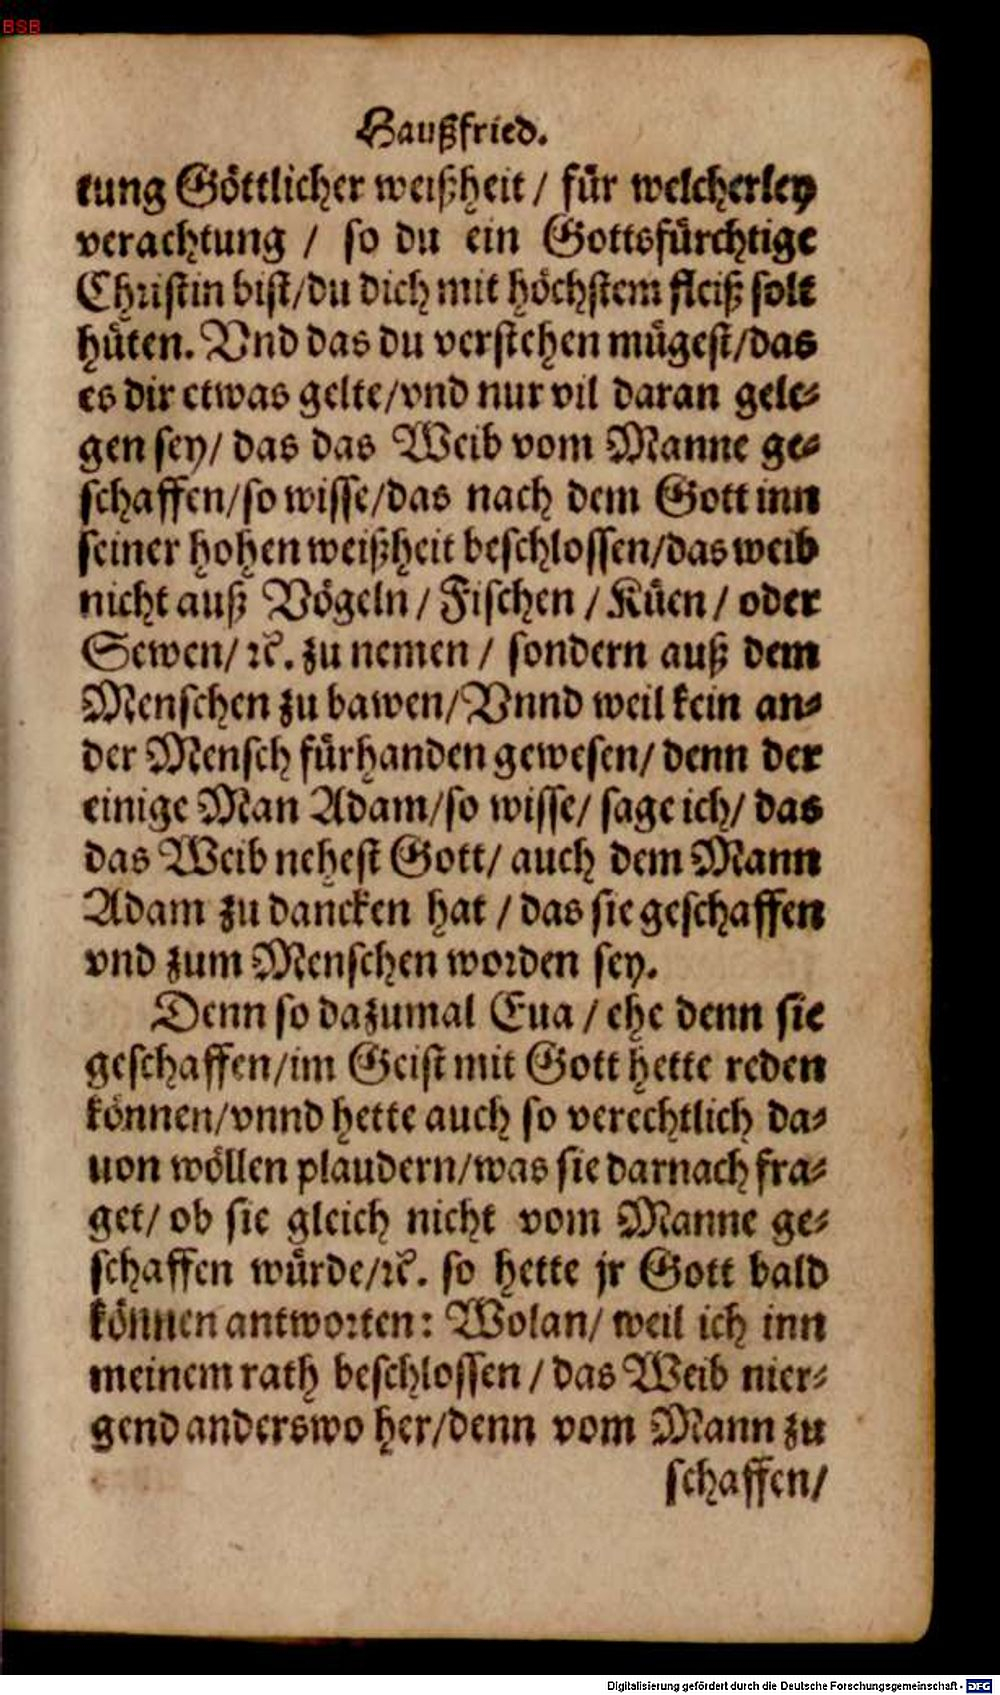 BSB
Haußfried.
tung Göttlicher weißheit / für welcherley
verachtung / so du ein Gottsfürchtige
Christin bist/du dich mit höchstem fleiß solt
hüten. Vnd das du verstehen mügest/das
es dir etwas gelte/vnd nur vil daran gele-
gen sey/ das das Weib vom Manne ge-
schaffen/so wisse/das nach dem Gott inn
seiner hohen weißheit beschlossen/das weib
nicht auß Vögeln / Fischen / Küen / oder
Sewen/ ꝛc. zu nemen / sondern auß dem
Menschen zu bawen/Vnnd weil kein an-
der Mensch fürhanden gewesen/ denn der
einige Man Adam/so wisse/ sage ich/ das
das Weib nehest Gott/ auch dem Mann
Adam zu dancken hat / das sie geschaffen
vnd zum Menschen worden sey.
Denn so dazumal Eua / ehe denn sie
geschaffen/im Geist mit Gott hette reden
können/vnnd hette auch so verechtlich da-
uon wöllen plaudern/was sie darnach fra-
get/ ob sie gleich nicht vom Manne ge-
schaffen würde/ꝛc. so hette jr Gott bald
können antworten: Wolan/ weil ich inn
meinem rath beschlossen / das Weib nier-
gend anderswo her/denn vom Mann zu
schaffen/
Digitalisierung gefördert durch die Deutsche Forschungsgemeinschaft - DFG